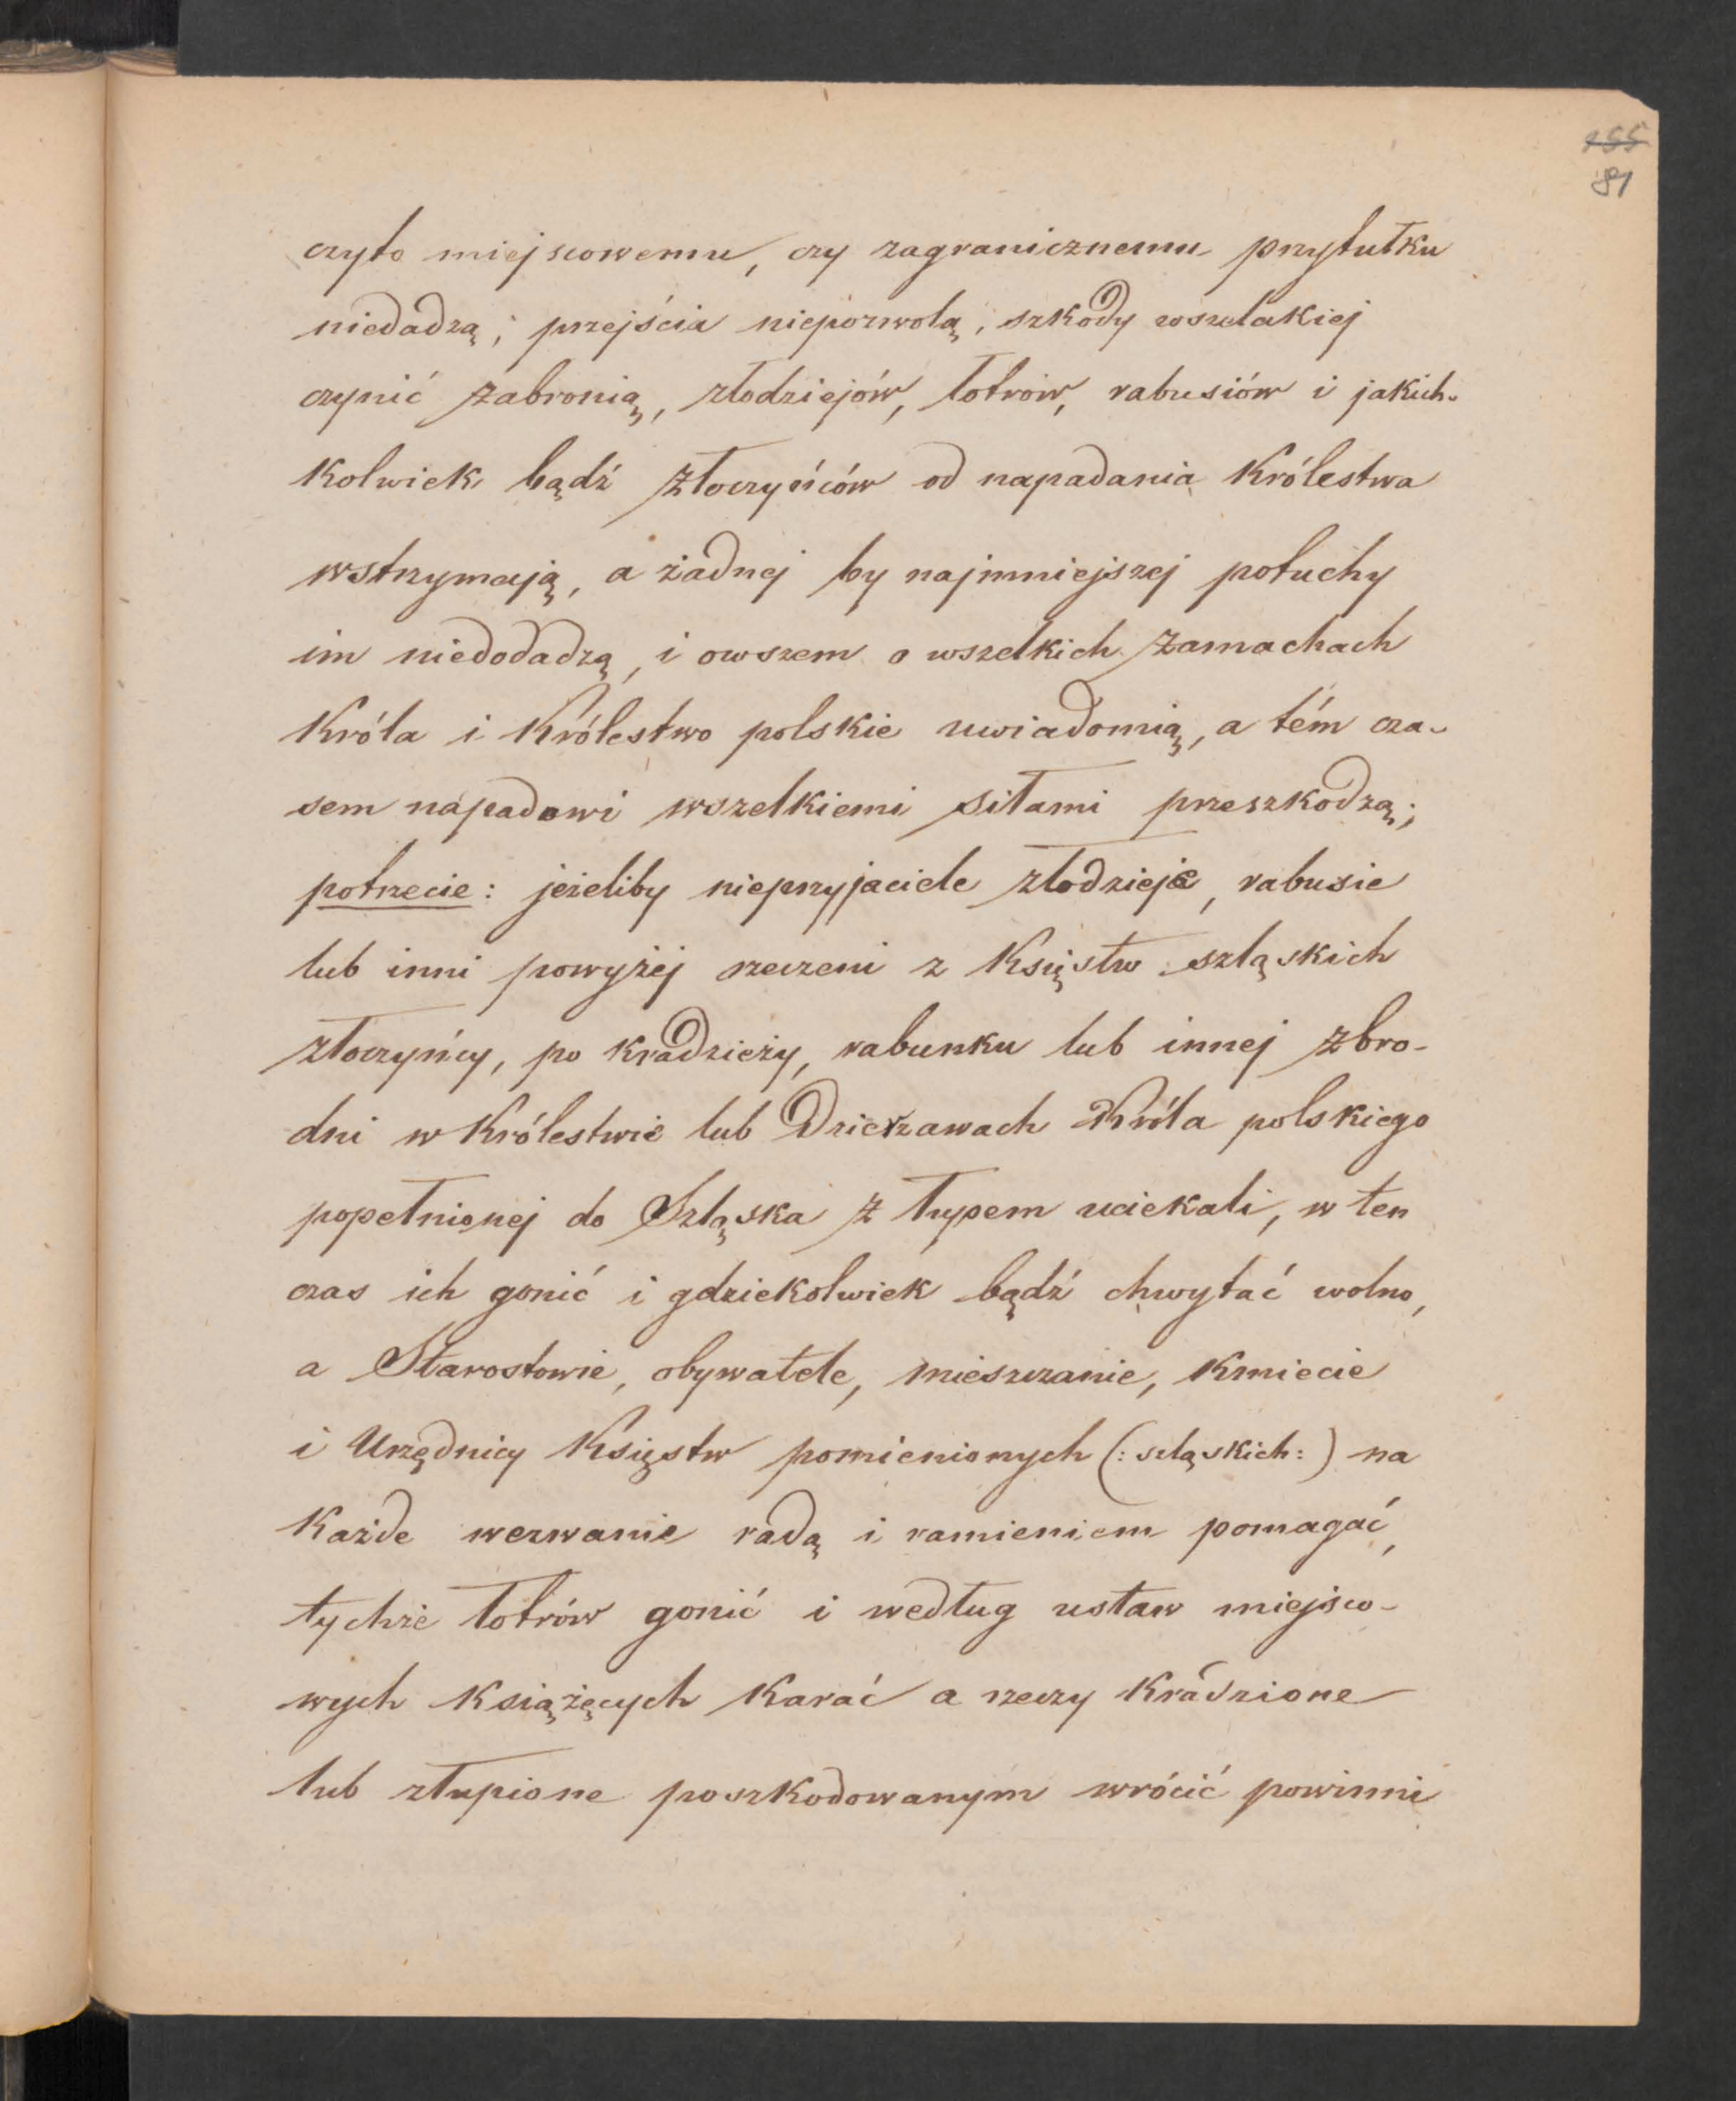 155
81
czyto miejscowemu, czy zagranicznemu przytułku
niedadzą; przejścia niepozwolą, szkody wszelakiej
czynić zabronią, złodziejów, łotrów, rabusiów i jakich-
kolwiek bądź złoczyńców od napadania Królestwa
wstrzymają, a żadnej by najmniejszej potuchy
im niedodadzą, i owszem o wszelkich zamachach
Króla i Królestwo polskie uwiadomią, a tém cza-
sem napadowi wszelkiemi siłami przeszkodzą;
potrzecie: jeżeliby nieprzyjaciele złodzieje, rabusie
lub inni powyżej rzeczeni z Księstw szląskich
złoczyńcy, po kradzieży, rabunku lub innej zbro-
dni w Królestwie lub Dzierżawach Króla polskiego
popełnionej do Szląska z łupem uciekali, w ten
czas ich gonić i gdziekolwiek bądź chwytać wolno,
a Starostowie, obywatele, mieszczanie, Kmiecie
i Urzędnicy Księstw pomienionych (: szląskich :) na
Każde wezwanie radą i ramieniem pomagać,
tychże łotrów gonić i według ustaw miejsco-
wych książęcych Karać a rzeczy Kradzione
lub złupione poszkodowanym wrócić powinni